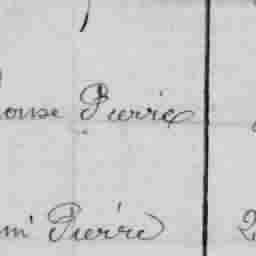 onse Pierre
mi Pierre 2